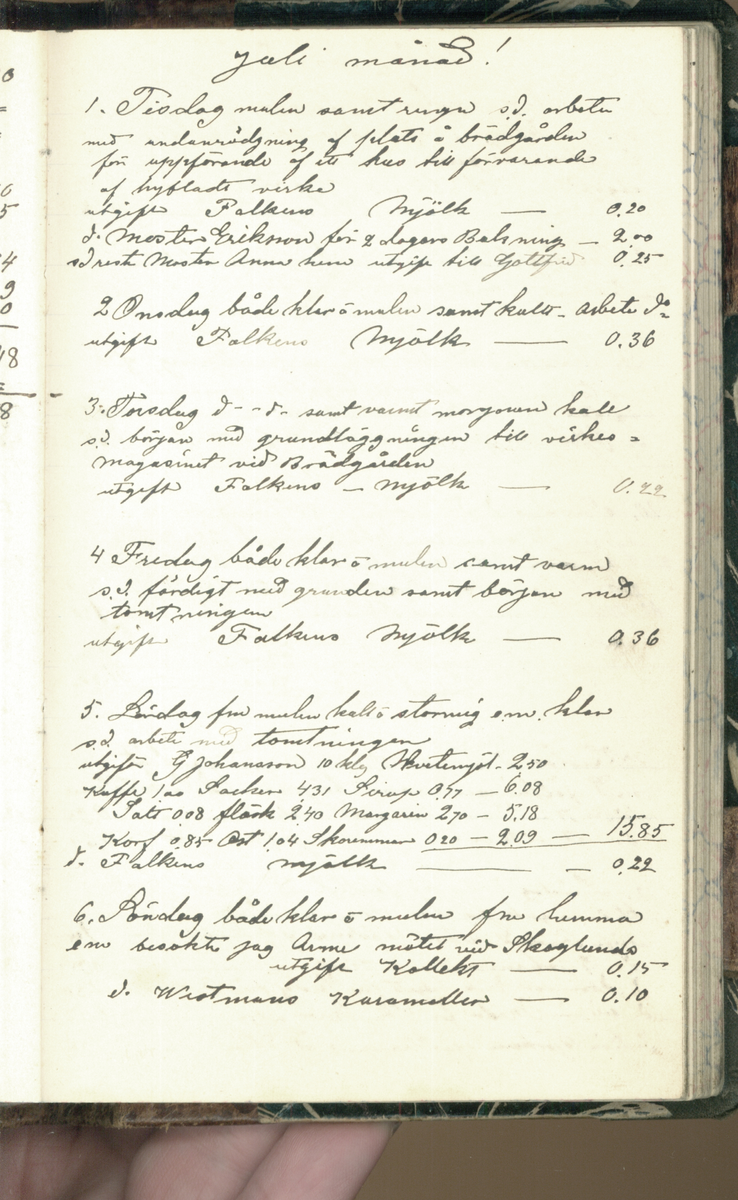 Juli månad!
1. Tisdag mulen samt regn s.d. arbete
med undanrödgning af plats å brädgården
för uppförande af ett hus till förvarande
af hybladt virke
utgift Falkens Mjölk — 0.20
d. Moster Erikson för 2 dagars Bakning — 2.00
s.d reste Moster Anna hem utgift till Gottfrid 0.25
2 Onsdag både klar o mulen samt kallt. arbete d:o
utgift Falkens Mjölk — 0.36
3. Torsdag d - - d - samt varmt morgonen kall
s.d. början med grundläggningen till virkes=
magasinet vid Brädgården
utgift Falkens — Mjölk — 0.22
4 Fredag både klar o mulen samt varm
s.d. färdigt med grunden samt början med
tomtningen
utgift Falkens Mjölk — 0.36
5. Lördag fm mulen kall o stormig e.m. klar
s.d. arbete med tomtningen
utgifter G Johansson 10 klg Hvetemjöl - 2.50
Kaffe 1.00 Socker 4.31 Sirap 0.77 — 6.08
Salt 0.08 fläsk 2.40 Margarin 2.70 - 5.18
Korf 0.85 Ost 1.04 Skoremmar 0.20 — 2.09 — 15.85
d. Falkens Mjölk — 0.22
6. Söndag både klar o mulen fm hemma
em besökte jag Arme mötet vid Skoglunds
utgift Kollekt — 0.15
d. Westmans Karameller — 0.10
0
0
5
4
9
0
18
8